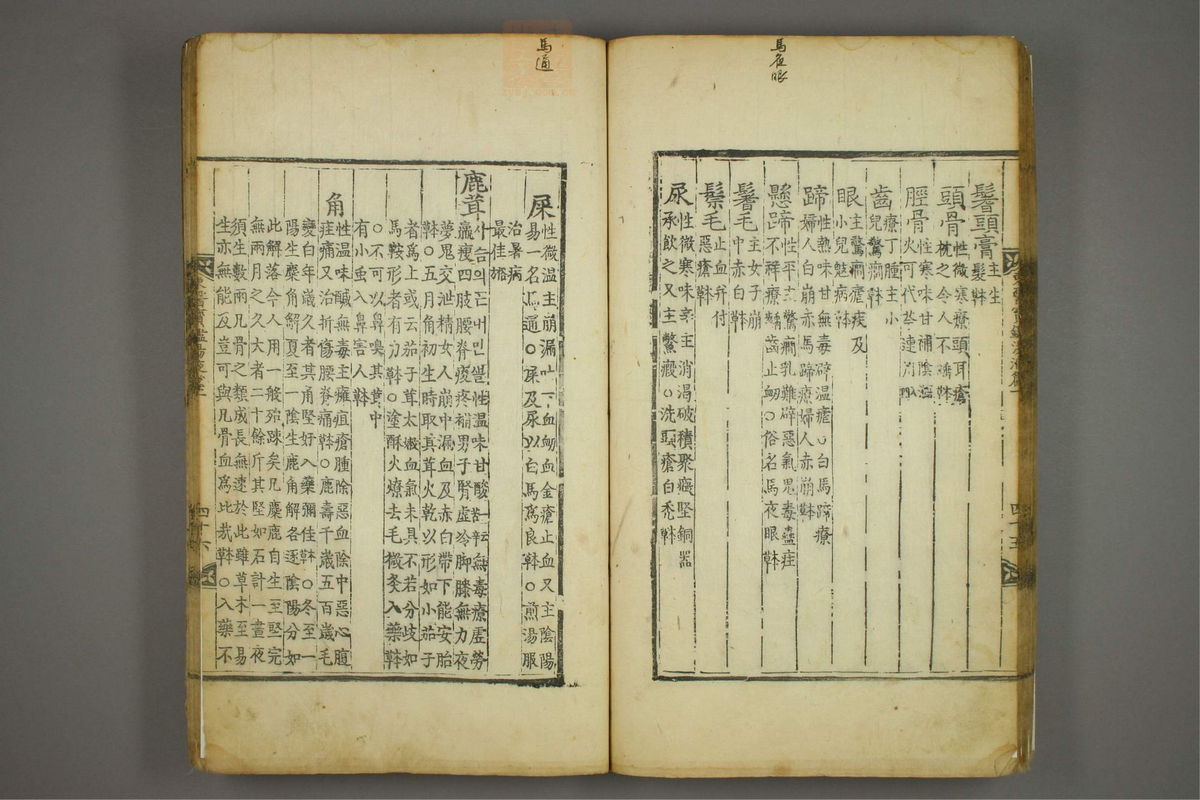 馬夜眼
鬐頭膏 主生
髮䪺
頭骨 性微寒療頭耳瘡
枕之令人不睡䪺
脛骨 性寒味甘補陰瀉
火可代芩連
齒 療丁腫主小
兒驚癎䪺
眼 主驚癎瘧疾及
小兒魃病䪺
蹄 性熱味甘無毒辟溫瘧○白馬蹄療
婦人白崩赤馬蹄療婦人赤崩䪺
懸蹄 性平主驚癎乳難辟惡氣鬼毒蠱疰
不祥療齲齒止衄○俗名馬夜眼䪺
鬐毛 主女子崩
中赤白䪺
鬃毛 止血幷付
惡瘡䪺
尿 性微寒味辛主消渴破積聚癥堅銅器
承飮之又主鱉瘕○洗頭瘡白禿䪺
四十五
馬通
屎 性微溫主崩漏吐下血衄血金瘡止血又主陰陽
易一名馬通○屎及尿以白馬爲良䪺○煎湯服
治暑病
最佳
鹿茸 사슴의 性溫味甘酸苦辛無毒療虛勞
羸瘦四肢腰脊痠疼補男子腎虛冷脚膝無力夜
夢鬼交泄精女人崩中漏血及赤白帶下能安胎
䪺○五月角初生時取其茸火乾以形如小茄子
者爲上或云茄子茸太嫩血氣未具不若分歧如
馬鞍形者有力䪺○塗酥火燎去毛微灸入藥䪺
○不可以鼻嗅其茸中
有小虫入鼻害人䪺
角 性溫味醎無毒主癰疽瘡腫除惡血除中惡心腹
疰痛又治折傷腰脊痛䪺○鹿壽千歲五百歲毛
變白年歲久者其角堅好入藥彌佳䪺○冬至一
陽生麋角解夏至一陰生鹿角解各逐陰陽分如
此解落今人用一般殆踈矣凡麋鹿自生至堅完
無兩月之久大者二十餘斤其堅如石計一晝夜
須生數兩凡骨之類成長無速於此雖草木至易
生亦無能及豈可與凡骨血爲比哉䪺○入藥不
四十六